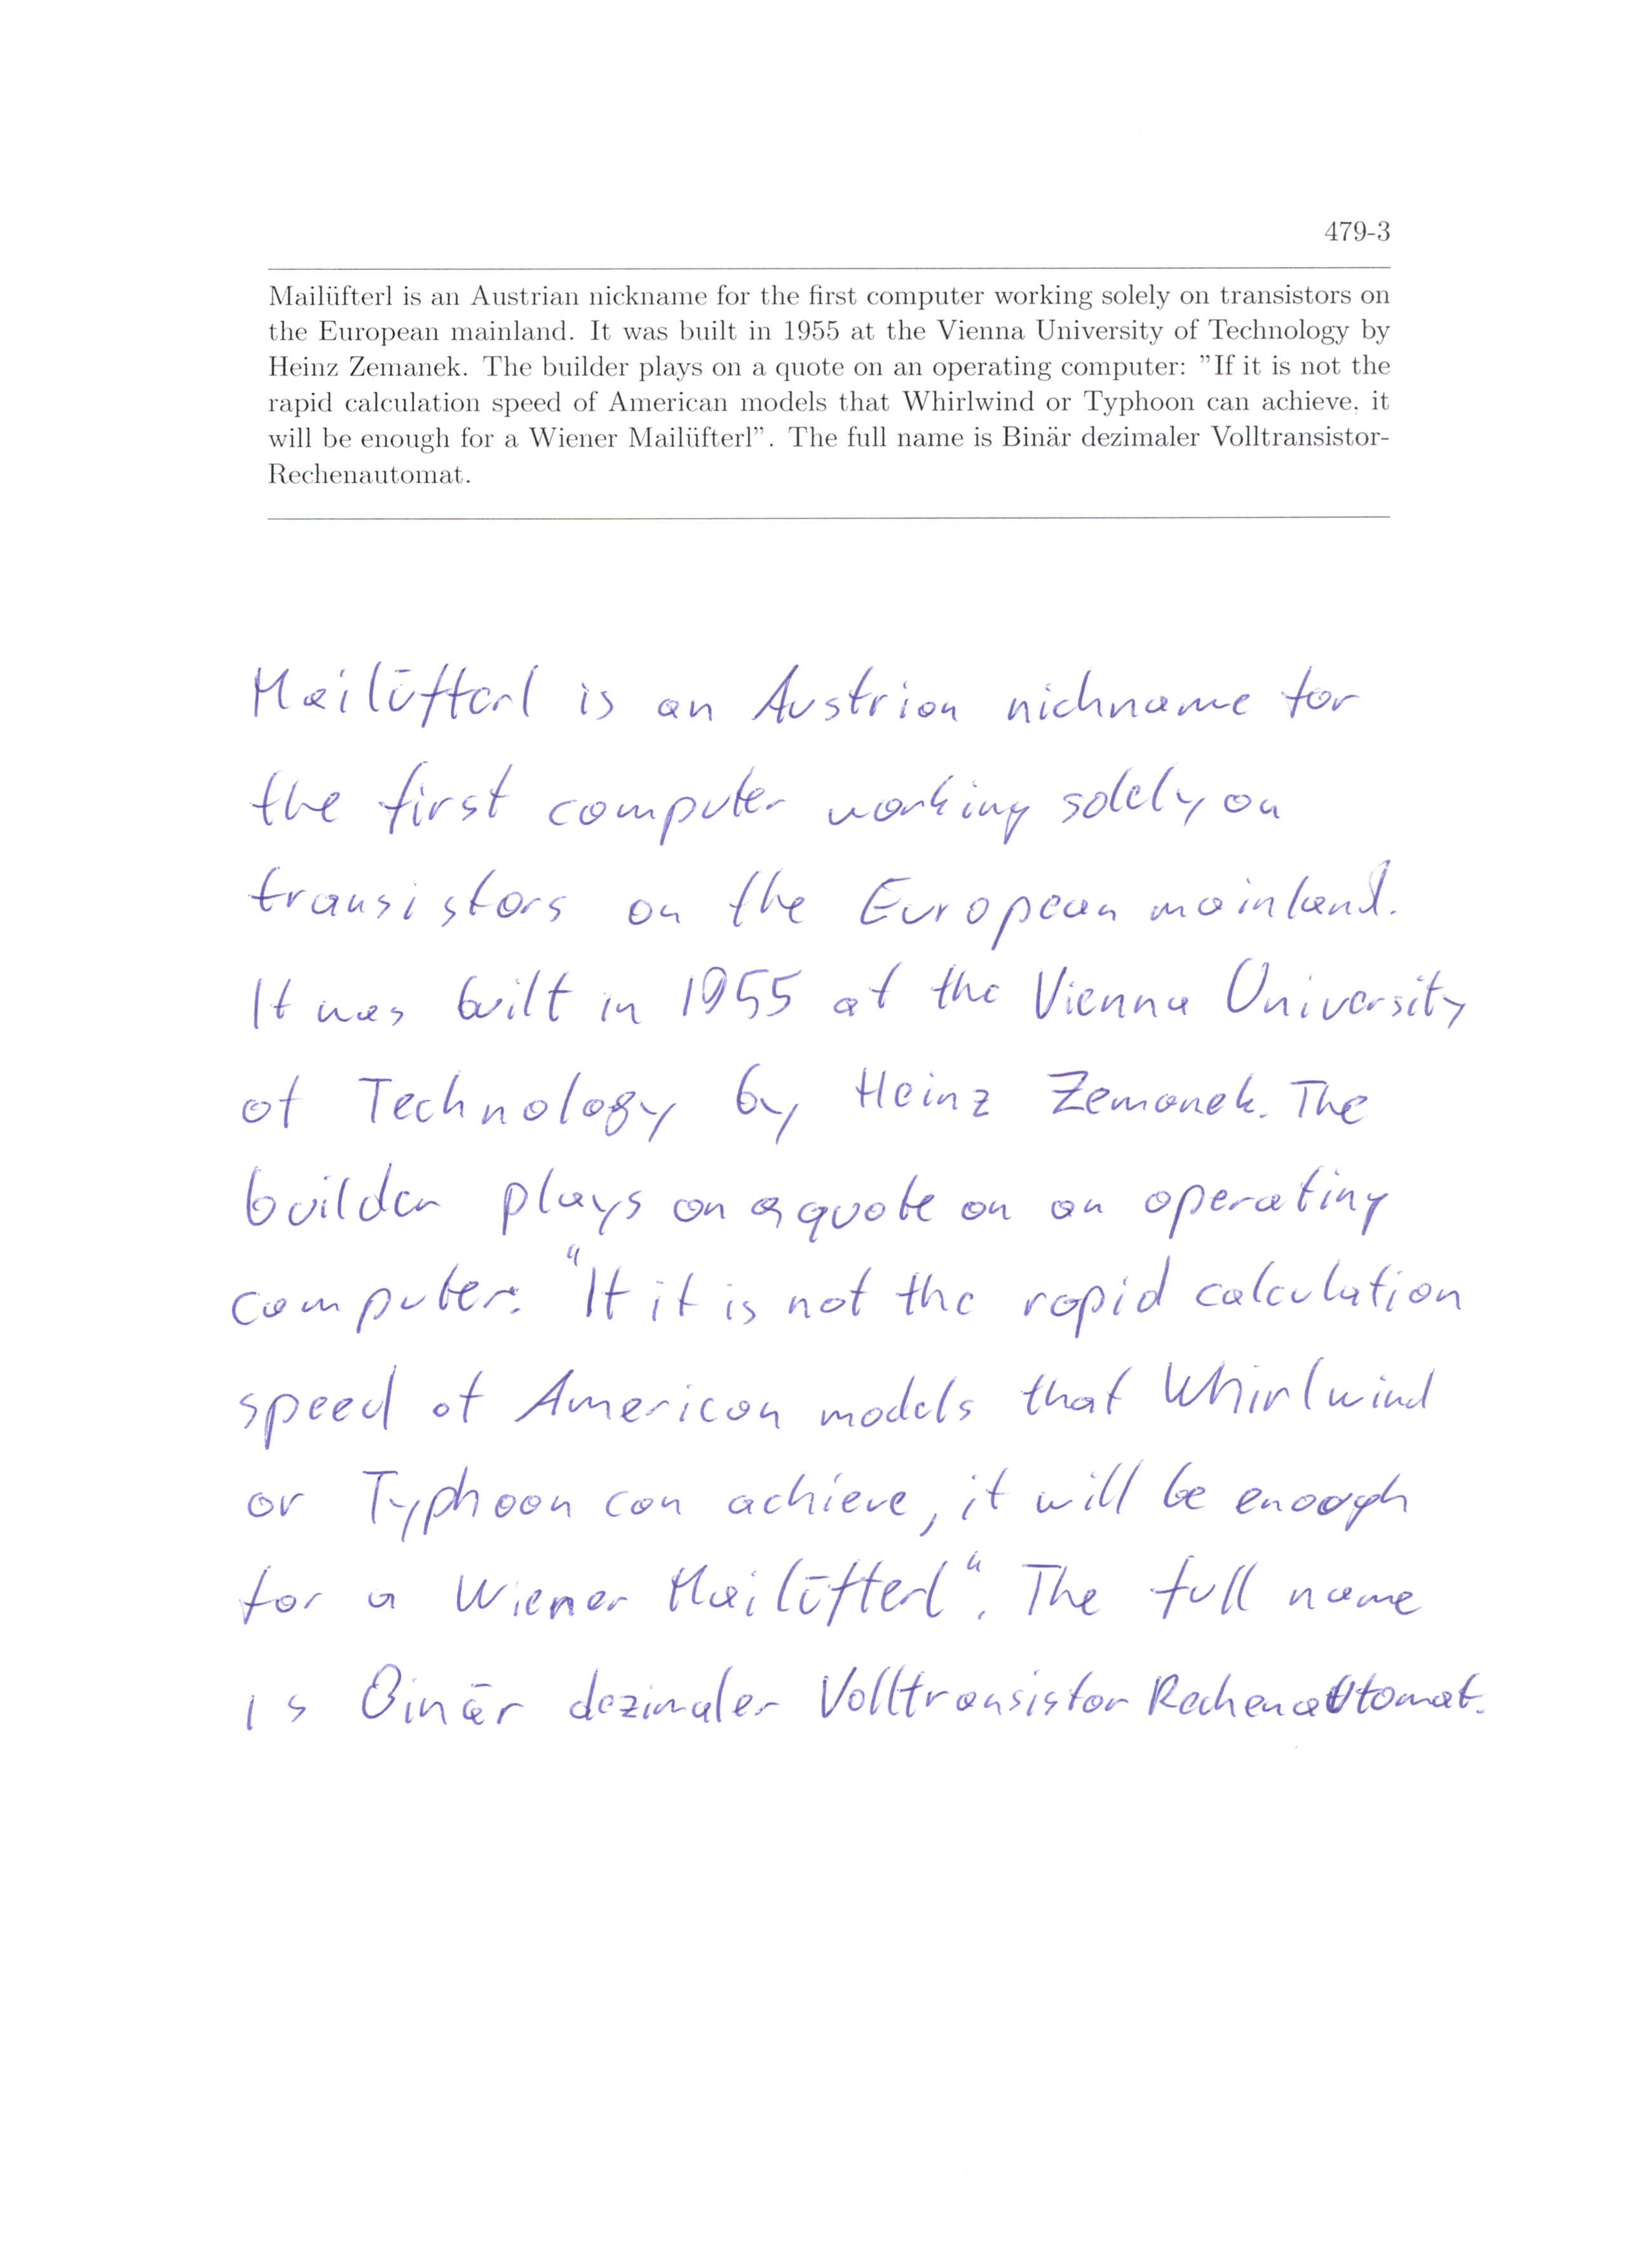 479-3
Mailüfterl is an Austrian nickname for the first computer working solely on transistors on
the European mainland. It was built in 1955 at the Vienna University of Technology by
Heinz Zemanek. The builder plays on a quote on an operating computer: ”If it is not the
rapid calculation speed of American models that Whirlwind or Typhoon can achieve, it
will be enough for a Wiener Mailüfterl”. The full name is Binär dezimaler Volltransistor-
Rechenautomat.
Mailüfterl is an Austrian nickname for
the first computer working solely on
transistors on the European mainland.
It was built in 1955 at the Vienna University
of Technology by Heinz Zemanek. The
builder plays on a quote on an operating
computer: "If it is not the rapid calculation
speed of American models that Whirlwind
or Typhoon can achieve, it will be enough
for a Wiener Mailüfterl". The full name
is Binär dezimaler Volltransistor Rechenautomat.